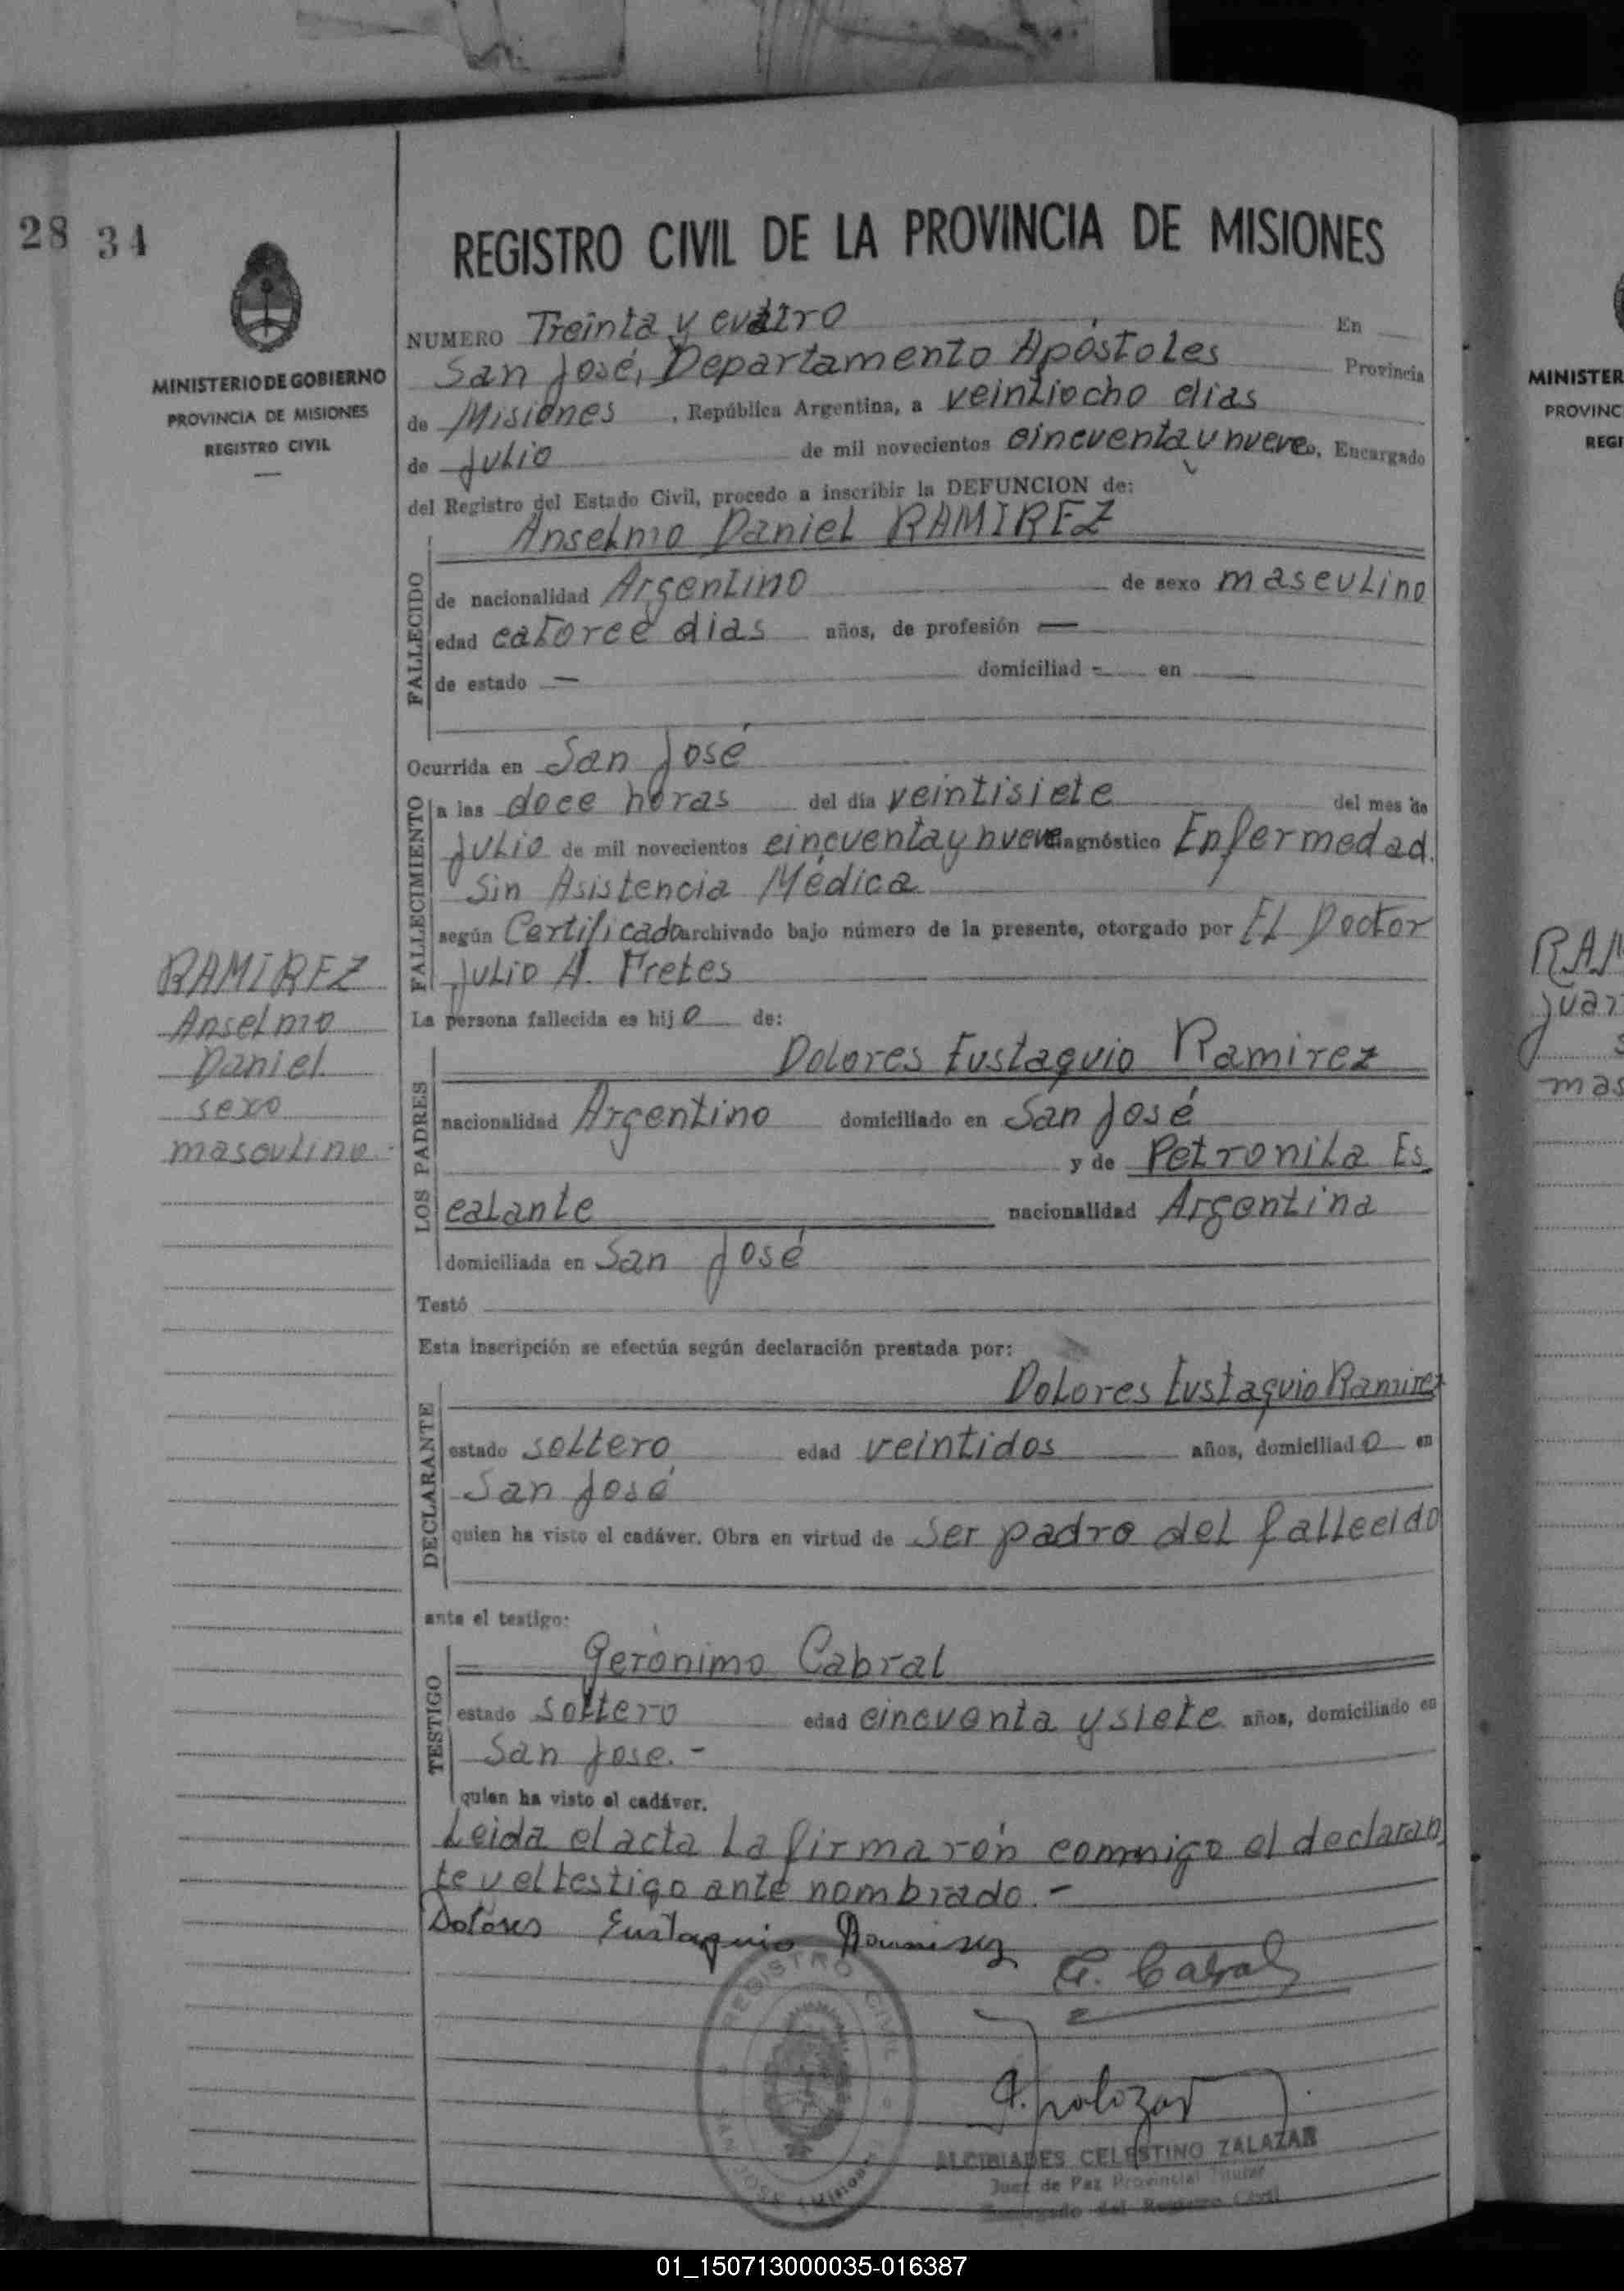 28 34
REGISTRO CIVIL DE LA PROVINCIA DE MISIONES
MINISTERIO DE GOBIERNO
PROVINCIA DE MISIONES
REGISTRO CIVIL
NUMERO Treinta y cuatro En
San José, Departamento Apóstoles Provincia
de Misiones, República Argentina, a veintiocho dias
de Julio de mil novecientos cincuenta y nueve, Encargado
del Registro del Estado Civil, procedo a inscribir la DEFUNCION de:
Anselmo Daniel RAMIREZ
FALLECIDO
de nacionalidad Argentino de sexo masculino
edad catorce dias años, de profesión —
de estado — domiciliad - en
Ocurrida en San José
FALLECIMIENTO
a las doce horas del día veintisiete del mes de
Julio de mil novecientos cincuenta y nueve diagnóstico Enfermedad.
Sin Asistencia Médica
según Certificado archivado bajo número de la presente, otorgado por El Doctor
Julio A. Fretes
La persona fallecida es hijo de:
LOS PADRES
Dolores Eustaquio Ramirez
nacionalidad Argentino domiciliado en San José
y de Petronila Es
calante nacionalidad Argentina
domiciliada en San José
Testó
Esta inscripción se efectúa según declaración prestada por:
DECLARANTE
Dolores Eustaquio Ramirez
estado soltero edad veintidos años, domiciliado en
San José
quien ha visto el cadáver. Obra en virtud de ser padre del fallecido
ante el testigo:
TESTIGO
Gerónimo Cabral
estado soltero edad cincuenta y siete años, domiciliado en
San Jose.-
quien ha visto el cadáver.
Leida el acta la firmarón conmigo el declaran
te y el testigo ante nombrado.-
Dolores Eustaquio Ramirez
G. Cabral
REGISTRO CIVIL
SAN JOSE (Misiones)
ALCIBIADES CELESTINO ZALAZAR
Juez de Paz Provincial Titular
Encargado del Registro Civil
RAMIREZ
Anselmo
Daniel
sexo
masculino
MINISTER
PROVINC
REGI
RAM
Juan
s
mas
01_150713000035-016387